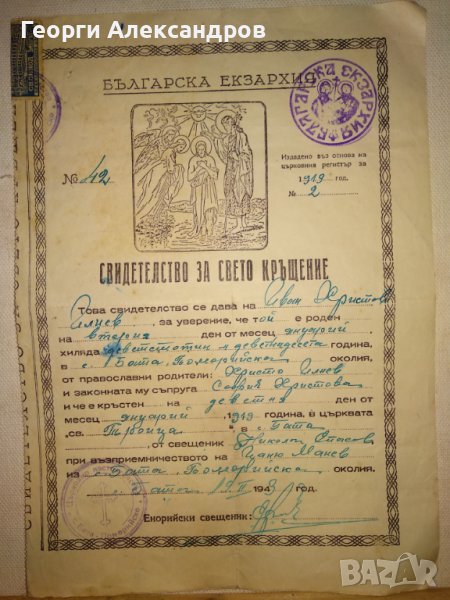 Георги Александров
БЪЛГАРСКА ЕКЗАРХИЯ
БЪЛГАРСКА ЕКЗАРХИЯ
Издадено въз основа на
църковния регистър за
1919 год.
№ 2
№ 42
СВИДЕТЕЛСТВО ЗА СВЕТО КРЪЩЕНИЕ
Това свидетелство се дава на Иван Христов
Илиев, за уверение, че той е роден
на втория ден от месец януарий
хиляда деветстотин и деветнадесета година,
в с. Бата, Поморийска околия,
от православни родители: Христо Илиев
и законната му съпруга София Христова
и че е кръстен на девети ден от
месец януарий 1919 година, в църквата
„св. Троица" в с. Бата
от свещеник Никола Спасов
при възприемничеството на Маньо
из с. Бата, Поморийска околия.
Бата, 194 год.
Енорийски свещеник:
BAZAR